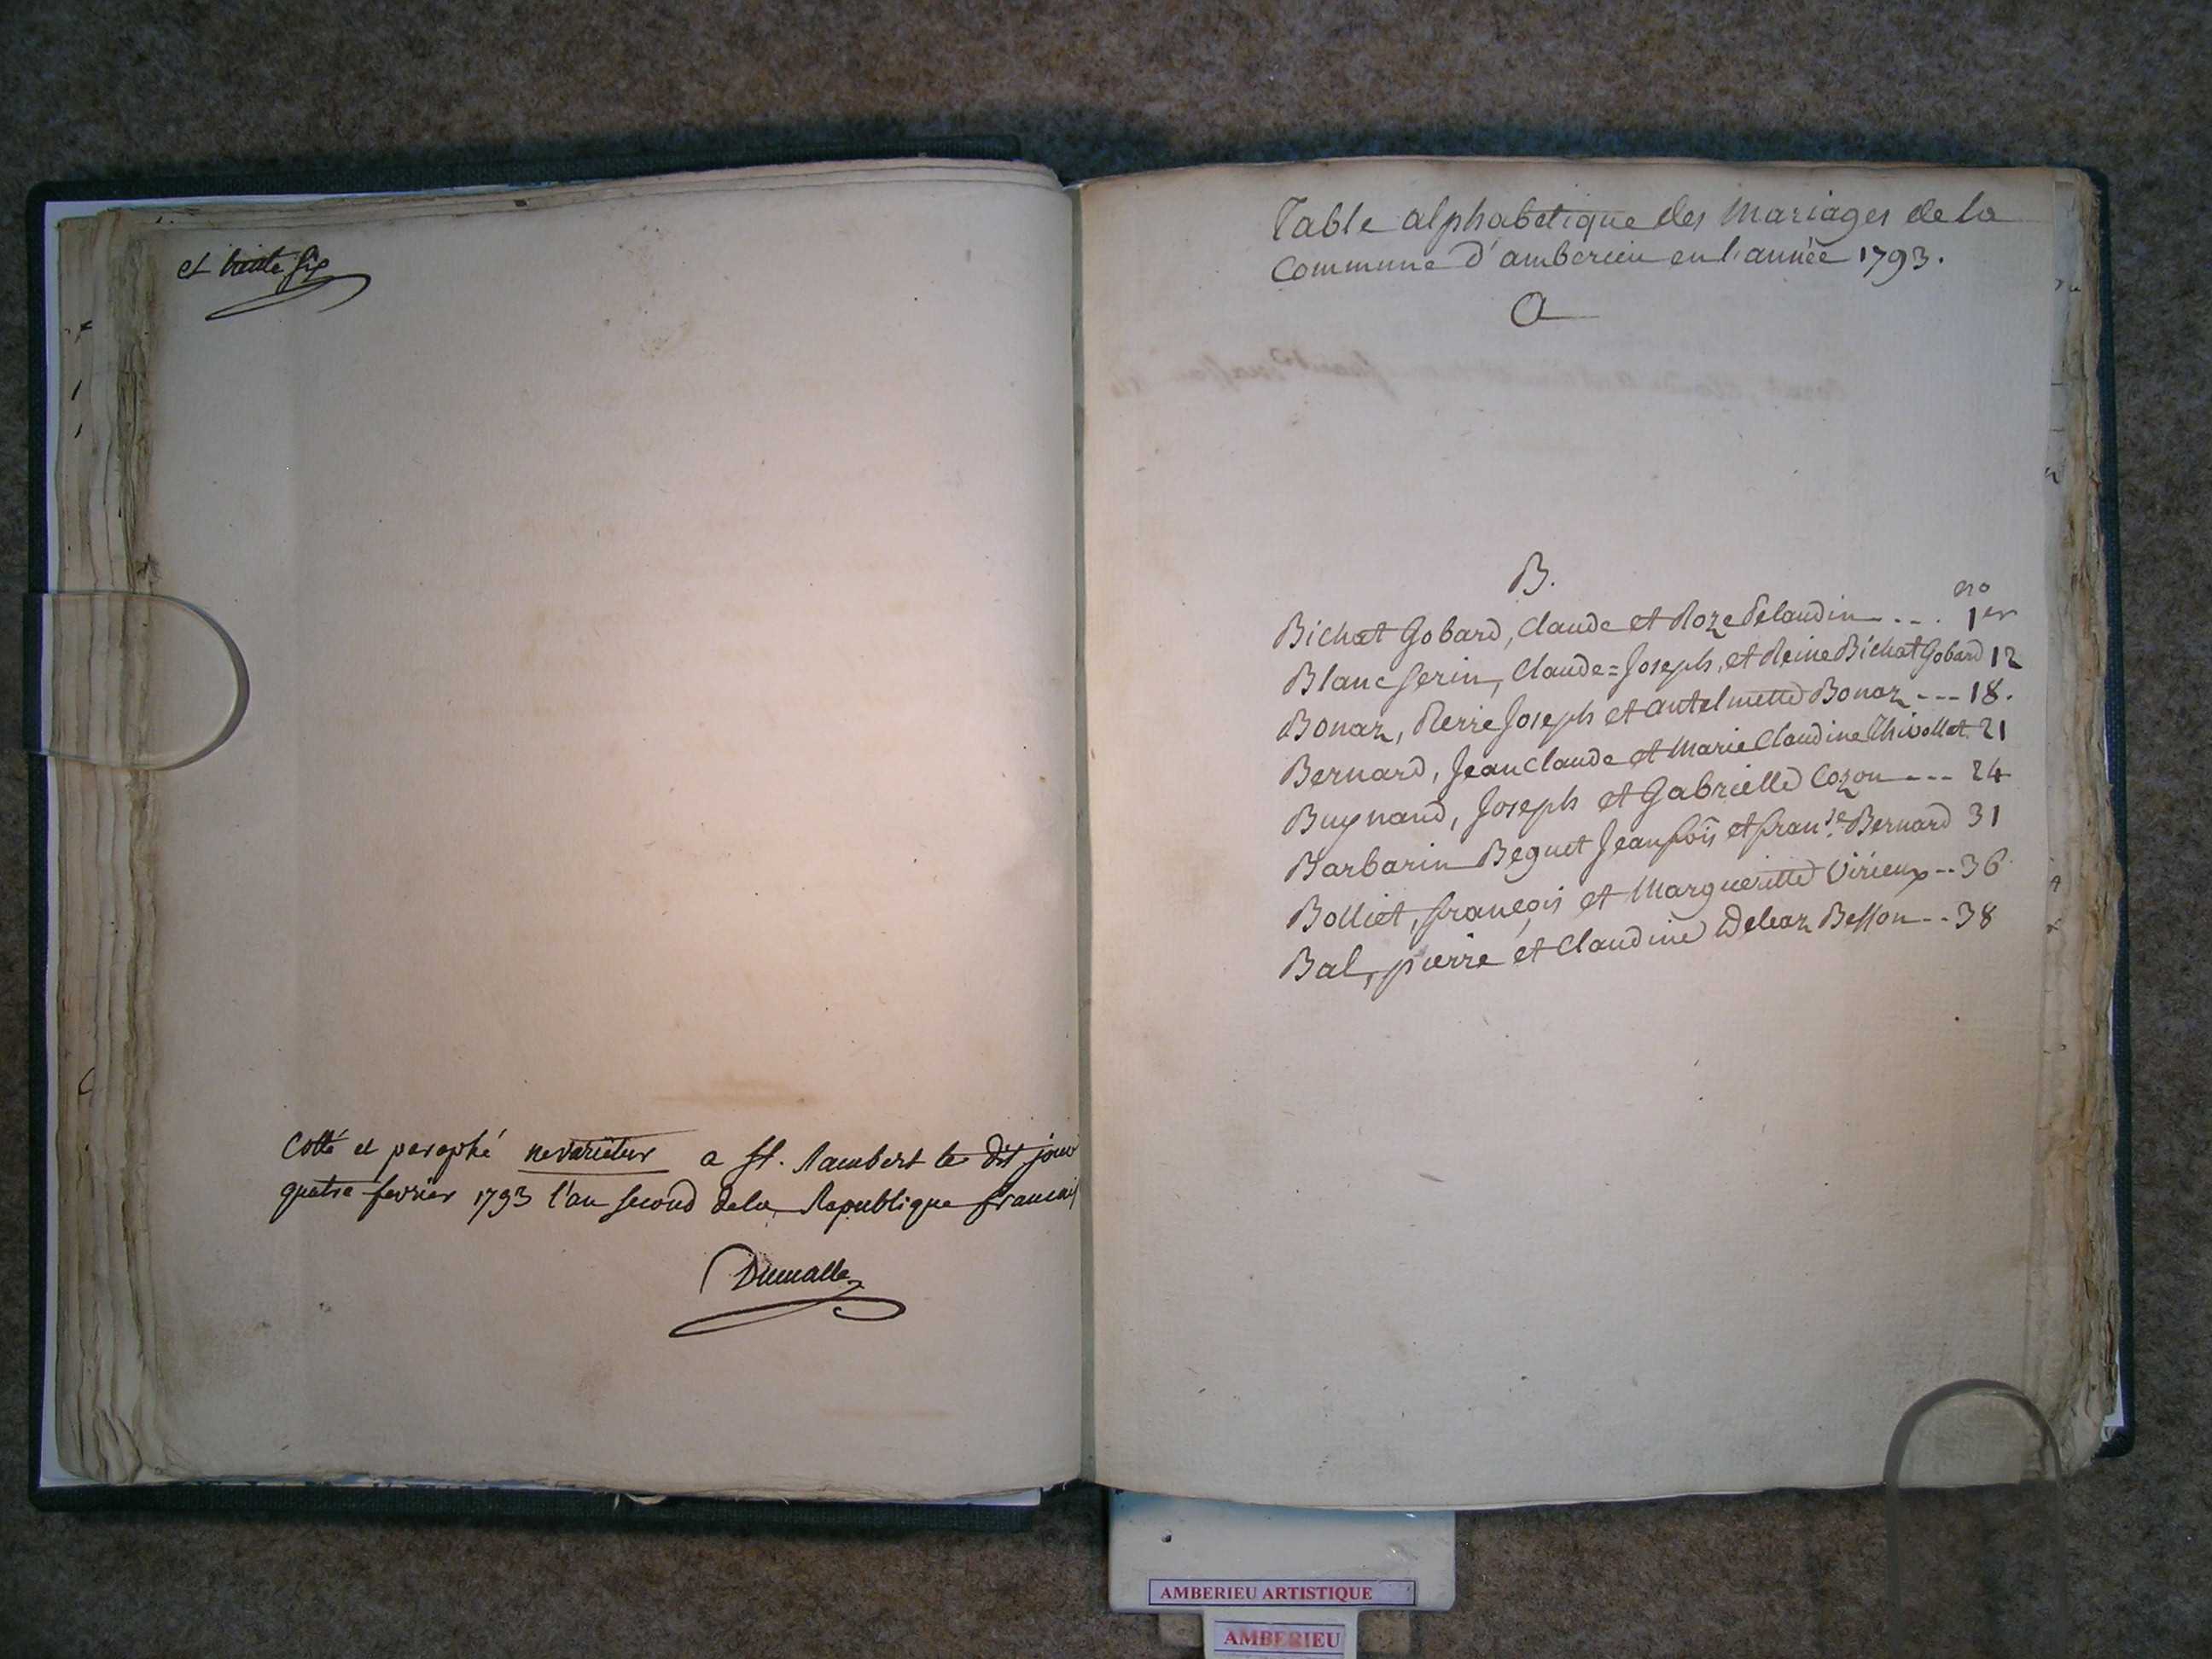 et trente six
Cotté et paraphé nevarietur a St. Rambert le dit jour
quatre fevrier 1793 l'an second dela Republique francais
Dumalle
Table alphabetique des Mariages de la
Commune d'amberieu en l'année 1793.
A
B.
no
Bichat Gobard, Claude et Roze Pelaudin - - - . 1er
Blanc Serin, Claude=Joseph, et Reine Bichat Gobard 12
Bonaz, Pierre Joseph et antelmette Bonaz - - - 18.
Bernard, Jean Claude et Marie Claudine Thivollet 21
Buynand, Joseph et Gabrielle Cozon - - - 24
Barbarin Beguet Jean fois et franse. Bernard 31
Bolliet, françois et Margueritte Virieux - - 36
Bal, pierre et Claudine Deleaz Besson - - 38
AMBERIEU ARTISTIQUE
AMBERIEU